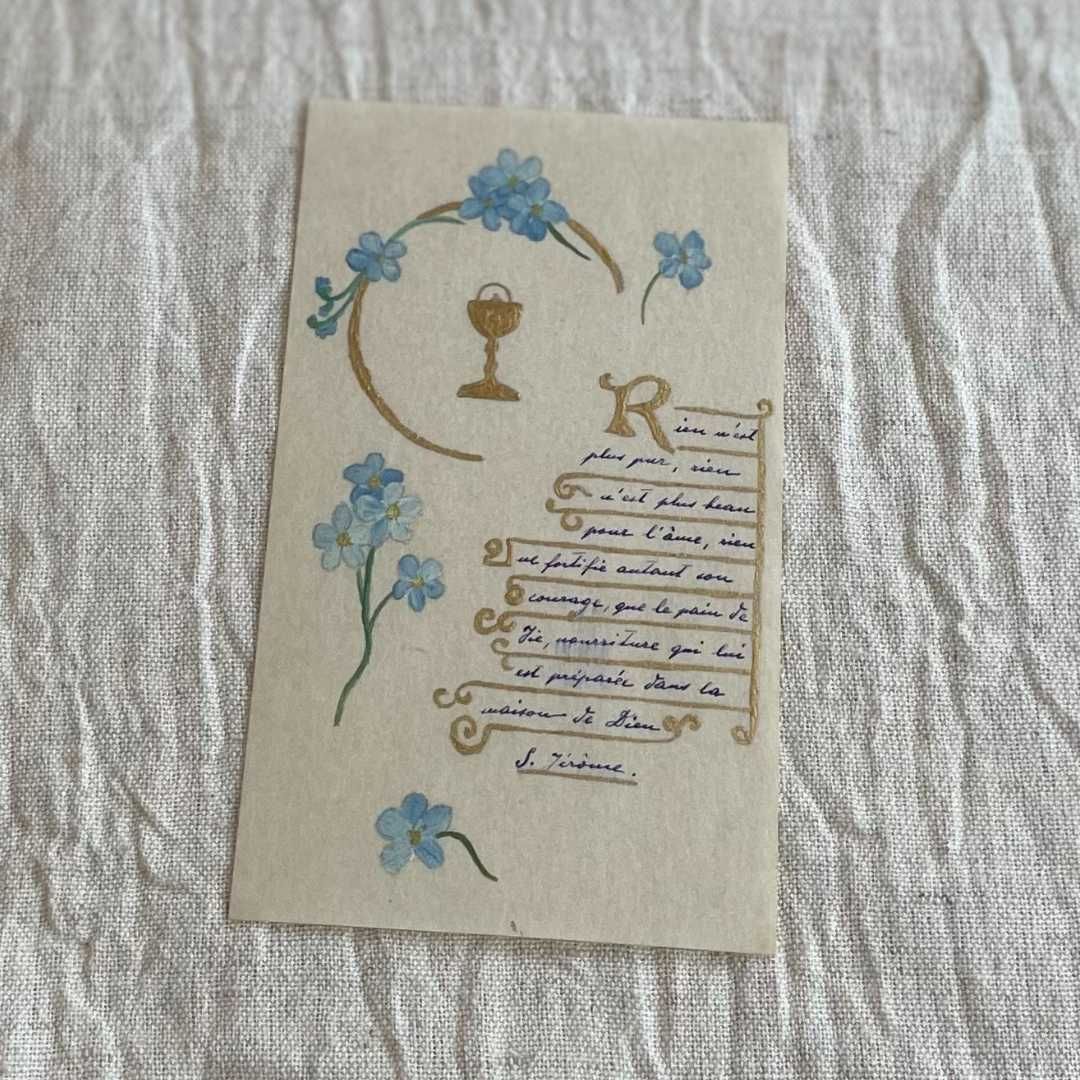 Rien n'est
plus pur, rien
n'est plus beau
pour l'âme, rien
ne fortifie autant son
courage, que le pain de
Vie, nourriture qui lui
est préparée dans la
maison de Dieu
S. Jérôme.